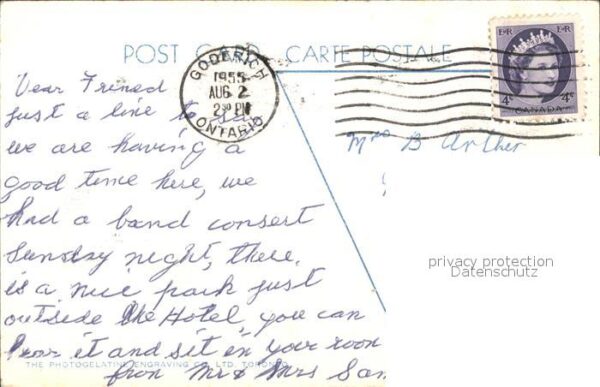 POST CARD CARTE POSTALE
GODERICH
1955
AUG 2
2 30 PM
ONTARIO
E R
E R
4c
4c
CANADA
Mrs B Arther
Dear Frined
just a line to say
we are having a
good time here, we
had a band consert
Sunday night, there
is a nice park just
outside the Hotel, you can
it and sit in your room
from Mr & Mrs
privacy protection
Datenschutz
THE PHOTOGELATINE ENGRAVING CO. LTD. TORONTO